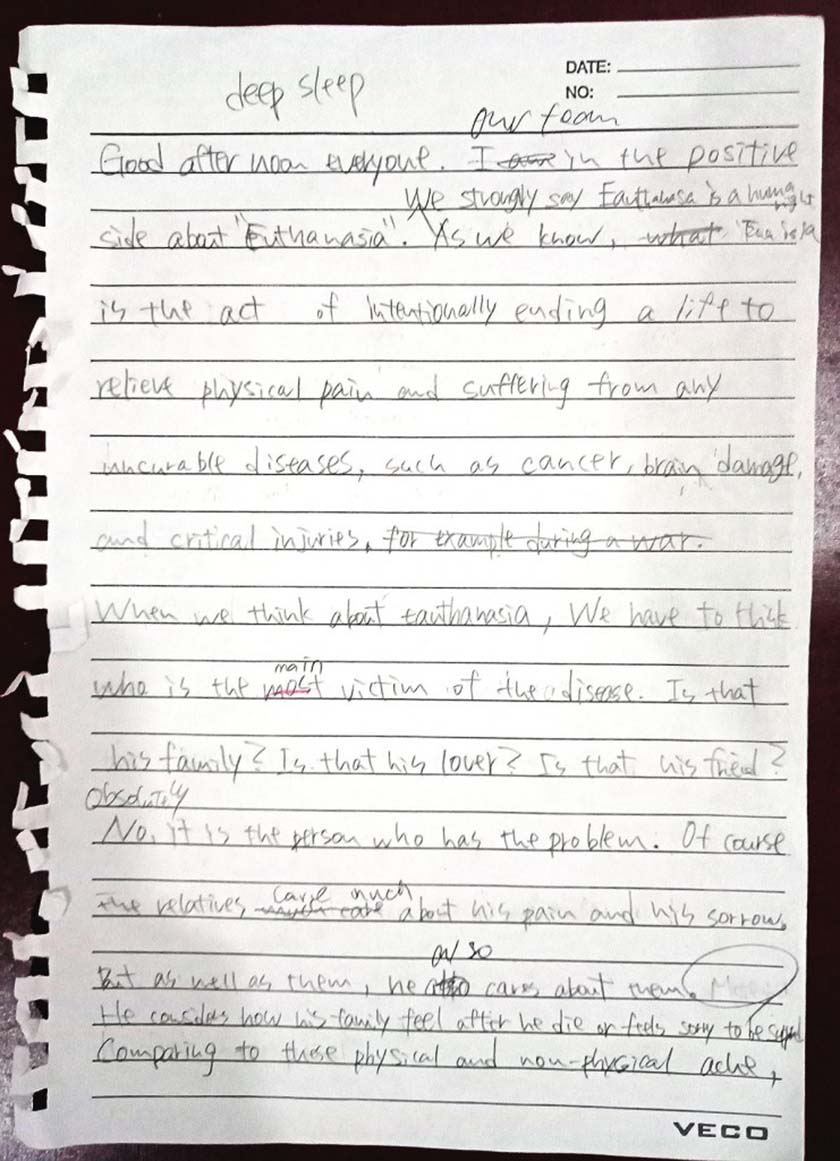 deep sleep
DATE:
NO:
our team
Good after noon everyone. I are in the positive
We strongly say Eauthanasa is a human right
side about "Euthanasia". As we know, what
is the act of Intentionally ending a life to
relieve physical pain and suffering from any
uncurable diseases, such as cancer, brain damage,
and critical injuries, for example during a war.
When we think about eauthanasia, We have to think
main
who is the most victim of the disease. Is that
his family? Is that his lover? Is that his friend?
Obsolutely
No, it is the person who has the problem. Of course
care much
the relatives much care about his pain and his sorrow.
also
But as well as them, he also cares about them.
He considers how his family feel after he die or feels sorry to be
Comparing to these physical and non-physical ache,
VECO